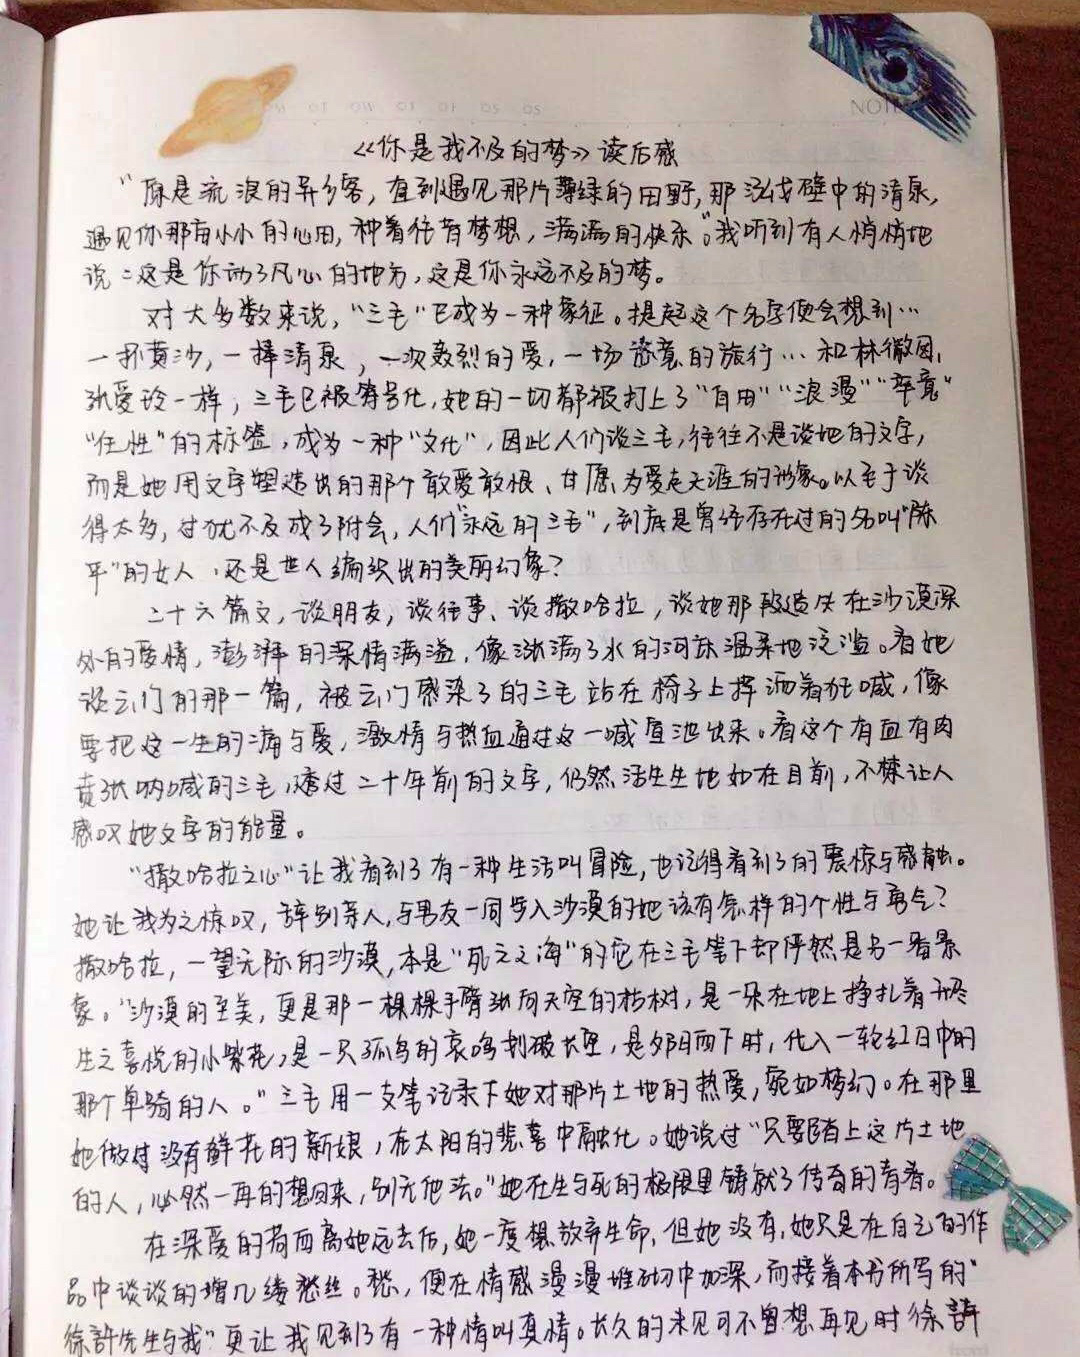 NOT
《你是我不及的梦》读后感
“原是流浪的异乡客，直到遇见那片薄绿的田野，那泓戈壁中的清泉，
遇见你那亩小小的心田，种着往昔梦想，满满的快乐。”我听到有人悄悄地
说：这是你动了凡心的地方，这是你永远不及的梦。
对大多数来说，“三毛”已成为一种象征。提起这个名字便会想到…
一抔黄沙，一捧清泉，一次轰烈的爱，一场恣意的旅行…和林徽因，
张爱玲一样，三毛已被符号化，她的一切都被打上了“自由”“浪漫”“率意”
“任性”的标签，成为一种“文化”，因此人们谈三毛，往往不是谈她的文字，
而是她用文字塑造出的那个敢爱敢恨、甘愿为爱走天涯的形象。以至于谈
得太多，过犹不及成了附会，人们“永远的三毛”，到底是曾经存在过的名叫“陈
平”的女人，还是世人编织出的美丽幻象？
二十六篇文，谈朋友，谈往事、谈撒哈拉，谈她那段遗失在沙漠深
处的爱情，澎湃的深情满溢，像涨满了水的河床温柔地泛滥。看她
谈云门的那一篇，被云门感染了的三毛站在椅子上挥洒着狂喊，像
要把这一生的痛与爱，激情与热血通过这一喊宣泄出来。看这个有血有肉
贲张呐喊的三毛，透过二十年前的文字，仍然活生生地如在目前，不禁让人
感叹她文字的能量。
“撒哈拉之心”让我看到了有一种生活叫冒险，也记得看到了的震惊与感触。
她让我为之惊叹，辞别亲人，与男友一同步入沙漠的她该有怎样的个性与勇气？
撒哈拉，一望无际的沙漠，本是“死之之海”的它在三毛笔下却俨然是另一番景
象。“沙漠的至美，更是那一棵棵手臂纵向天空的枯树，是一朵在地上挣扎着开尽
生之喜悦的小紫花，是一只孤鸟的哀鸣划破长空，是夕阳西下时，化入一轮红日中的
那个单骑的人。”三毛用一支笔记录下她对那片土地的热爱，宛如梦幻。在那里
她做过没有鲜花的新娘，在太阳的悲喜中融化。她说过“只要踏上这片土地
的人，必然一再的想回来，别无他法。”她在生与死的极限里铸就了传奇的青春。
在深爱的荷西离她远去后，她一度想放弃生命，但她没有，她只是在自己的作
品中谈谈的增几缕愁丝。愁，便在情感漫漫堆砌中加深，而接着本书所写的“
徐訏先生与我”更让我见到了有一种情叫真情。长久的未见可不曾想再见时徐訏